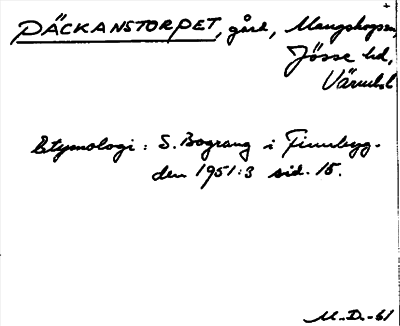 PÄCKANSTORPET, gård, Mangskogs sn,
Jösse hd,
Värml.
Etymologi: S. Bograng i Finnbyg-
den 1951:3 sid. 15.
M.-D.-61